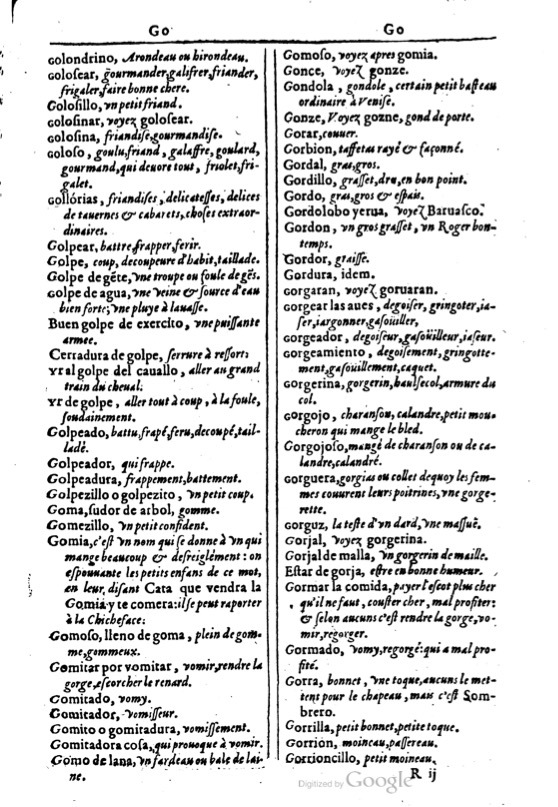 Go
Go
Golondrino, Arondeau ou hirondeau.
Golosear, gourmander, galifrer, friander,
frigaler, faire bonne chere.
Golosillo, vn petit friand.
Golosinar, voyez golosear.
Golosina, friandise, gourmandise.
Goloso, goulu, friand, galaffre, goulard,
gourmand, qui deuore tout, friolet, fri-
galet.
Gollórias, friandises, delicatesses, delices
de tauernes & cabarets, choses extraor-
dinaires.
Golpear, battre, frapper, ferir.
Golpe, coup, decoupeure d'habit, taillade.
Golpe de gẽte, vne troupe ou foule de gẽs.
Golpe de agua, vne veine & source d'eau
bien forte; vne pluye à lauasse.
Buen golpe de exercito, vne puissante
armee.
Cerradura de golpe, serrure à ressort:
Yr al golpe del cauallo, aller au grand
train du cheual:
Yr de golpe, aller tout à coup, à la foule,
soudainement.
Golpeado, battu, frapé, feru, decoupé, tail-
ladé.
Golpeador, qui frappe.
Golpeadura, frappement, battement.
Golpezillo o golpezito, vn petit coup.
Goma, sudor de arbol, gomme.
Gomezillo, vn petit confident.
Gomia, c'est vn nom qui se donne à vn qui
mange beaucoup & desreiglément: on
espouuante les petits enfans de ce mot,
en leur, disant Cata que vendra la
Gomia y te comera: il se peut raporter
à la Chicheface:
Gomoso, lleno de goma, plein de gom-
me, gommeux.
Gomitar por vomitar, vomir, rendre la
gorge, escorcher le renard.
Gomitado, vomy.
Gomitador, vomisseur.
Gomito o gomitadura, vomissement.
Gomitadora cosa, qui prouoque à vomir.
Gomo de lana, vn fardeau ou bale de lai-
ne.
Gomoso, voyez apres gomia.
Gonce, voyez gonze.
Gondola, gondole, certain petit basteau
ordinaire à Venise.
Gonze, Voyez gozne, gond de porte.
Gorar, couuer.
Gorbion, taffetas rayé & façonné.
Gordal, gras, gros.
Gordillo, grasset, dru, en bon point.
Gordo, gras, gros & espais.
Gordolobo yerua, voyez Baruasco.
Gordon, vn gros grasset, vn Roger bon-
temps.
Gordor, graisse.
Gordura, idem.
gorgaran, voyez goruaran.
gorgear las aues, degoiser, gringoter, ia-
ser, iargonner, gasouiller,
gorgeador, degoiseur, gasoüilleur, iaseur.
gorgeamiento, degoisement, gringotte-
ment, gasouillement, caquet.
gorgerina, gorgerin, haulsecol, armure du
col.
gorgojo, charanson, calandre, petit mou-
cheron qui mange le bled.
Gorgojoso, mangé de charanson ou de ca-
landre, calandré.
gorguera, gorgias ou collet dequoy les fem-
mes couurent leurs poitrines, vne gorge-
rette.
gorguz, la teste d'vn dard, vne massuë.
Gorjal, voyez gorgerina.
Gorjal de malla, vn gorgerin de maille.
Estar de gorja, estre en bonne humeur.
Gormar la comida, payer l'escot plus cher
qu'il ne faut, couster cher, mal profiter:
& selon aucuns c'est rendre la gorge, vo-
mir, regorger.
Gormado, vomy, regorgé: qui a mal pro-
fité.
Gorra, bonnet, vne toque, aucuns le met-
tent pour le chapeau, mais c'est Som-
brero.
Gorrilla, petit bonnet, petite toque.
Gorrion, moineau, passereau.
Gorrioncillo, petit moineau.
R ij
Digitized by Google